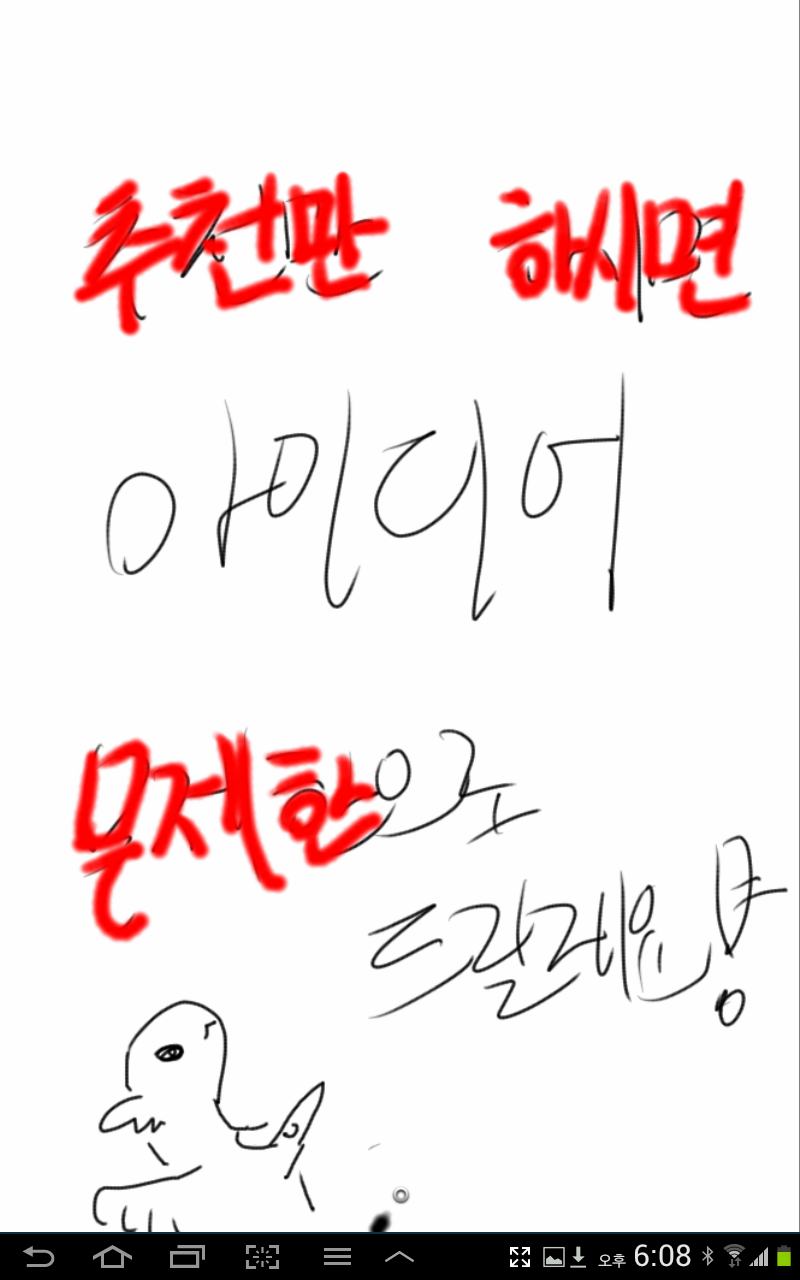 추천만 하시면
아이디어
무제한으로
드릴레요!
오후 6:08